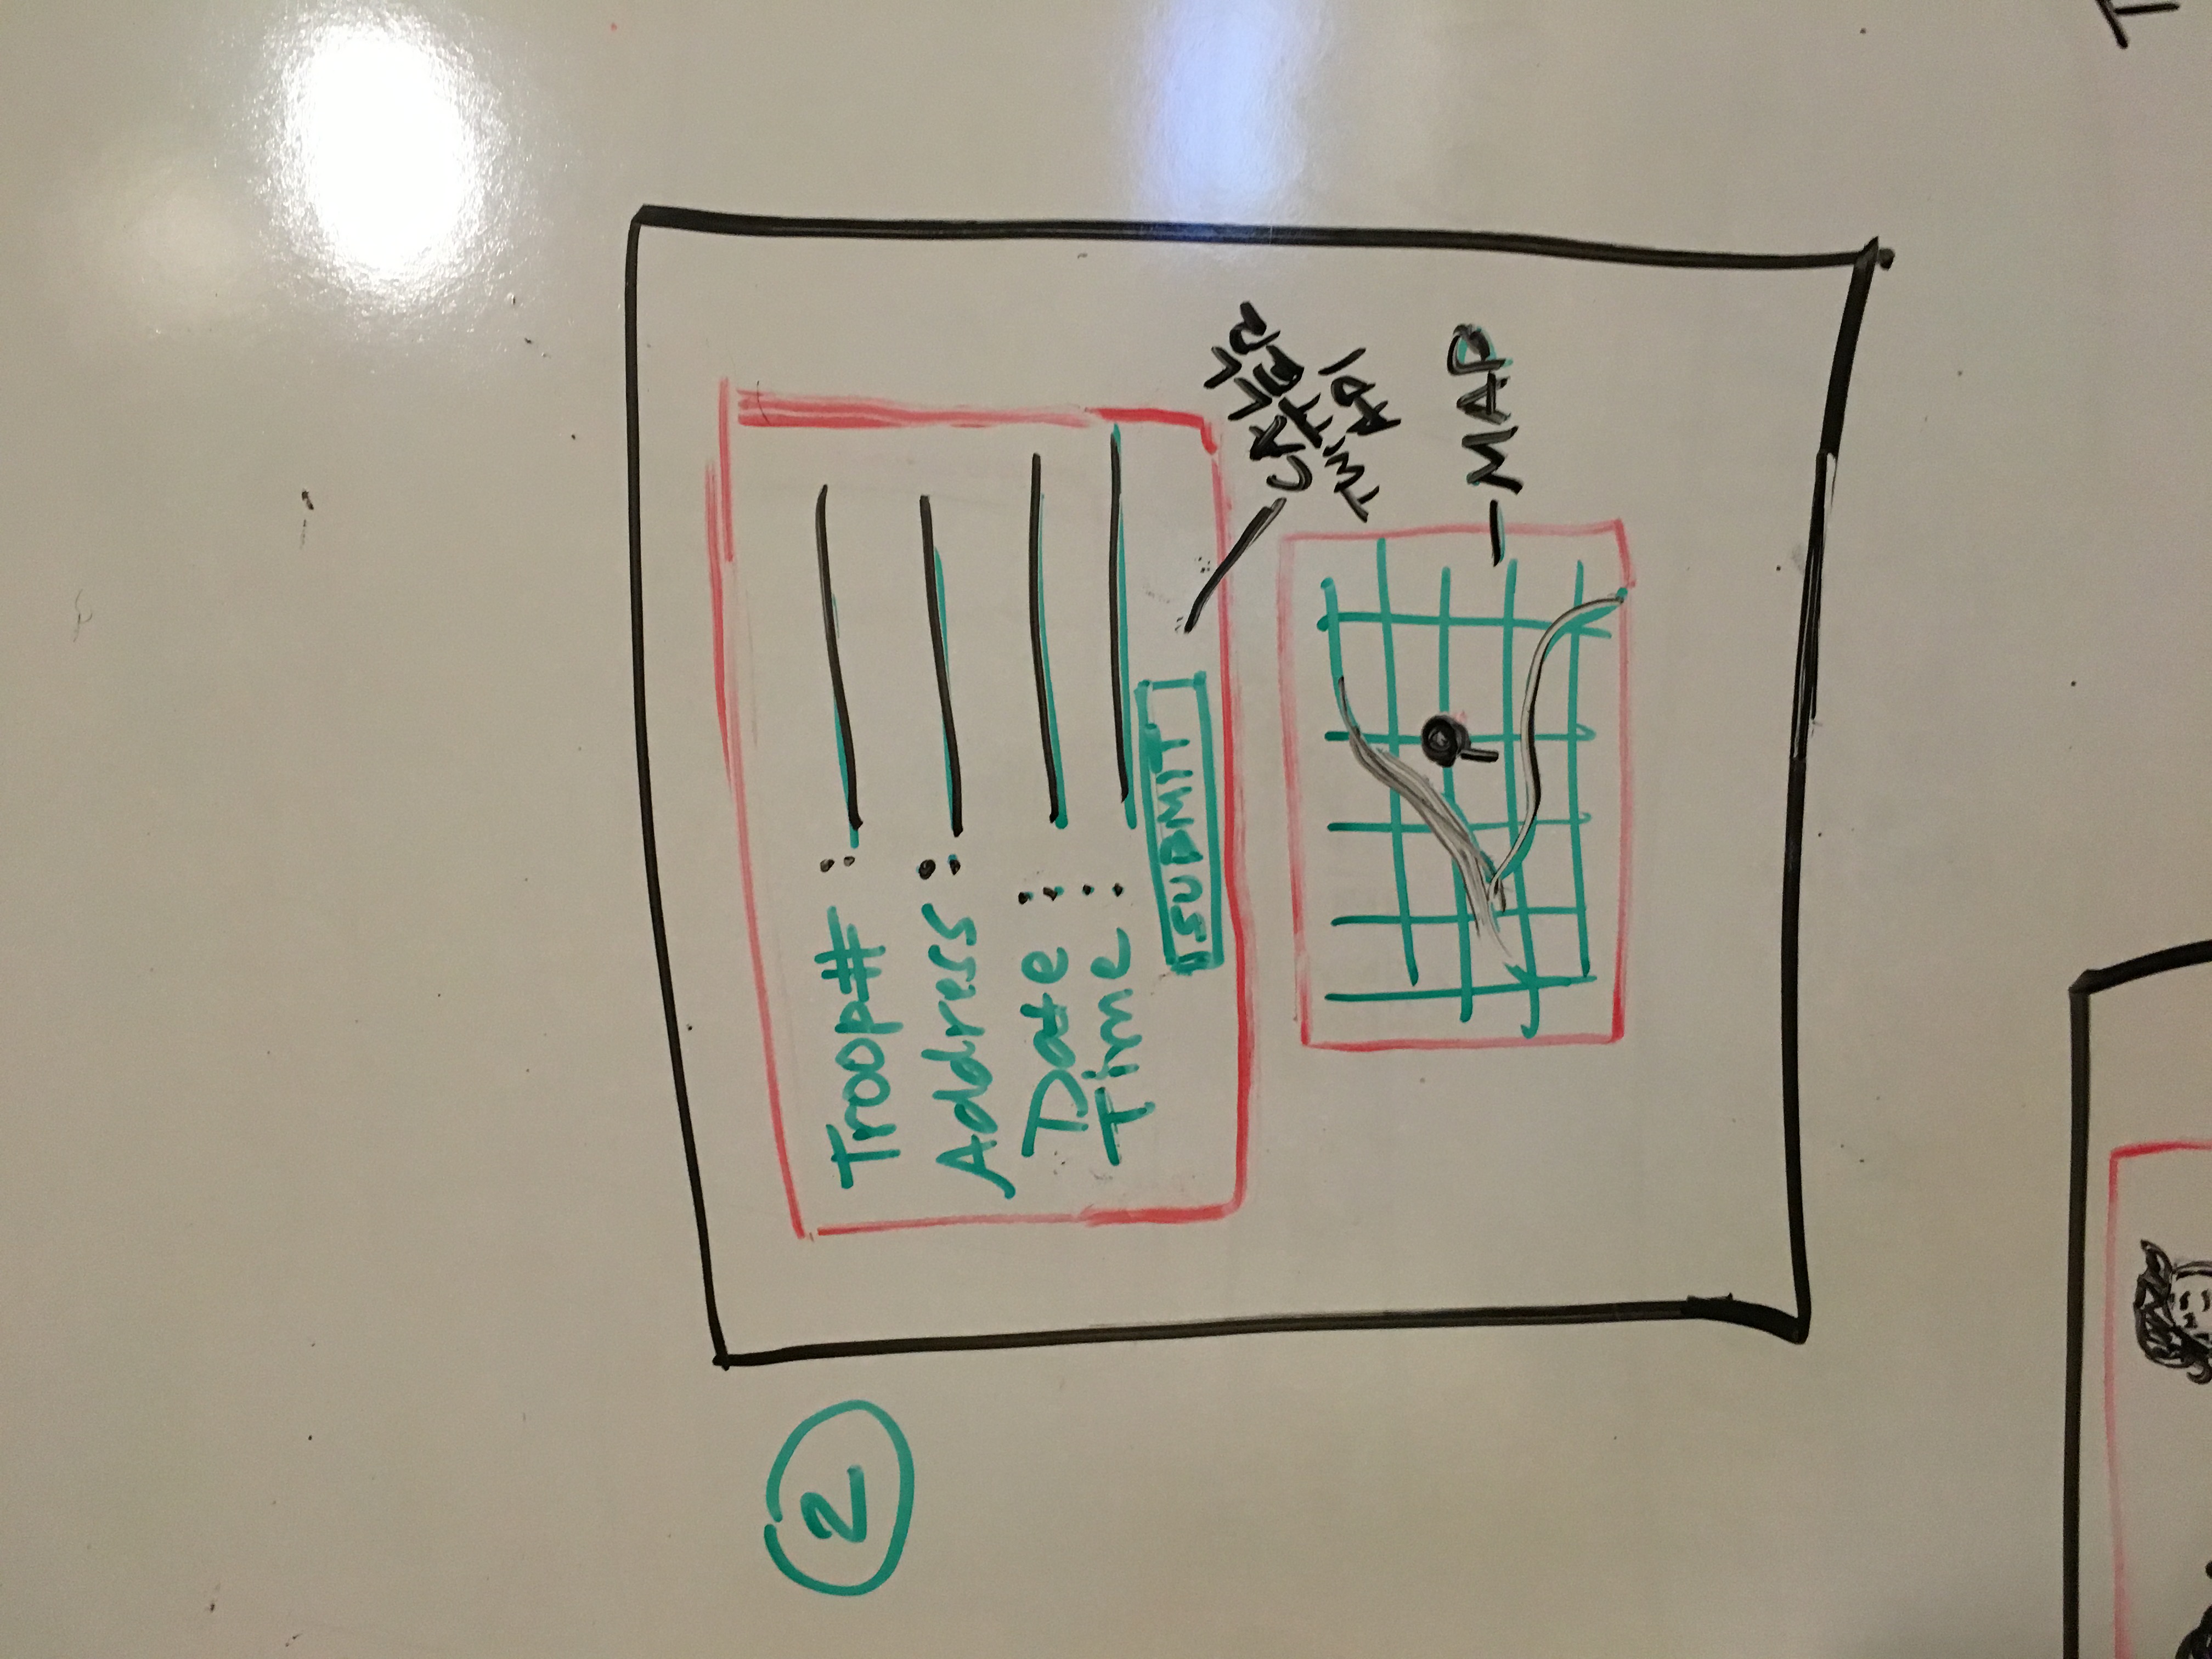 2
Troop# :
Address :
Date :
Time :
SUBMIT
CALL
TWITTER
API
MAP
T